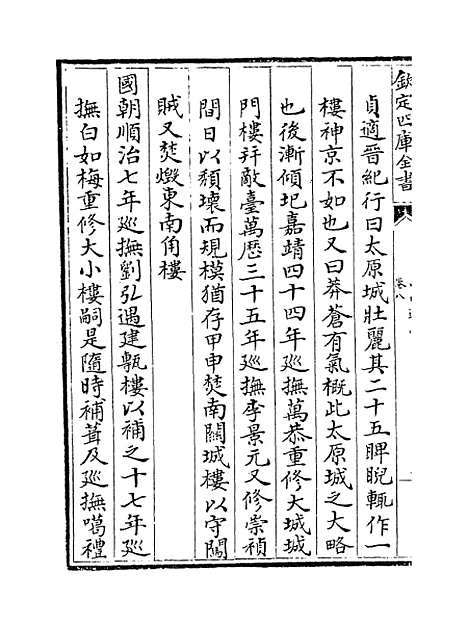 欽定四庫全書
卷八
貞適晉紀行曰太原城壯麗其二十五睥睨輒作一
樓神京不如也又曰莽蒼有氣概此太原城之大略
也後漸傾圯嘉靖四十四年巡撫萬恭重修大城城
門樓并敵臺萬歷三十五年巡撫李景元又修崇禎
間日以頽壞而規模猶存甲申焚南關城樓以守闖
賊又焚燬東南角樓
國朝順治七年巡撫劉弘遇建甎樓以補之十七年巡
撫白如梅重修大小樓嗣是隨時補葺及巡撫噶禮